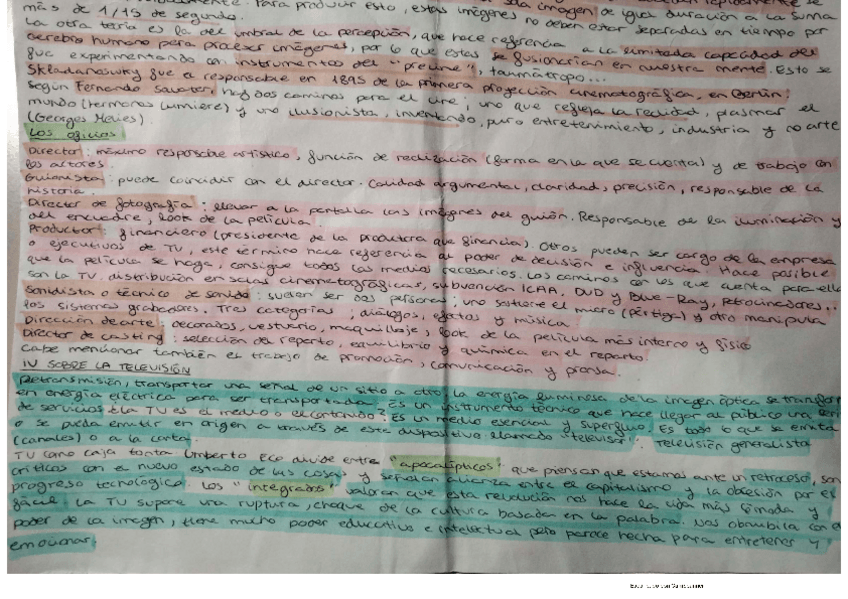 sola imagen de igual duración a la suma
más de 1/15 de segundo. Para producir esto, estas imágenes no deben estar separadas en tiempo por
La otra teoría es la del umbral de la percepción, que hace referencia a la limitada capacidad del
cerebro humano para procesar imágenes, por lo que estas se fusionarían en nuestra mente. Esto se
fue experimentando con instrumentos del "precine", taumátropo...
Skladanowsky fue el responsable en 1895 de la primera proyección cinematográfica, en Berlín.
Según Fernando Savater, hay dos caminos para el cine; uno que refleja la realidad, plasmar el
mundo (hermanos Lumiere) y uno ilusionista, inventando, puro entretenimiento, industria y no arte
(Georges Melies).
Los oficios
Director: máximo responsable artístico, función de realización (forma en la que se cuenta) y de trabajo con
los actores.
Guionista: puede coincidir con el director. Calidad argumental, claridad, precisión, responsable de la
historia.
Director de fotografía: llevar a la pantalla las imágenes del guión. Responsable de la iluminación y
del encuadre, look de la película.
Productor: financiero (presidente de la productora que financia). Otros pueden ser cargo de la empresa
o ejecutivos de TV, este término hace referencia al poder de decisión e influencia. Hace posible
que la película se haga, consigue todos los medios necesarios. Los caminos con los que cuenta para ello
son la TV, distribución en salas cinematográficas, subvención ICAA, DVD y Blue-Ray, Patrocinadores...
Sonidista o técnico de sonido: suelen ser dos personas; uno sostiene el micro (pértiga) y otro manipula
los sistemas grabadores. Tres categorías; diálogos, efectos y música.
Dirección de arte: decorados, vestuario, maquillaje, look de la película más interno y físico
Director de casting: selección del reparto, equilibrio y química en el reparto.
Cabe mencionar también el trabajo de promoción, comunicación y prensa.
IV SOBRE LA TELEVISIÓN
Retransmisión, transportar una señal de un sitio a otro, la energía luminosa de la imagen óptica se transfor
en energía eléctrica para ser transportada. Es un instrumento técnico que hace llegar al público una seri
de servicios. ¿La TV es el medio o el contenido? Es un medio esencial y superfluo. Es todo lo que se emita
o se pueda emitir en origen a través de este dispositivo llamado "televisor". Televisión generalista
(canales) o a la carta.
TV como caja tonta Umberto Eco divide entre "apocalípticos" que piensan que estamos ante un retroceso, son
críticos con el nuevo estado de las cosas y señalan alianza entre el capitalismo y la obsesión por el
progreso tecnológico. Los "integrados" valoran que esta revolución nos hace la vida más cómoda y
fácil. La TV supone una ruptura, choque de la cultura basada en la palabra. Nos obnubila con el
poder de la imagen, tiene mucho poder educativo e intelectual pero parece hecha para entretener y
emocionar.